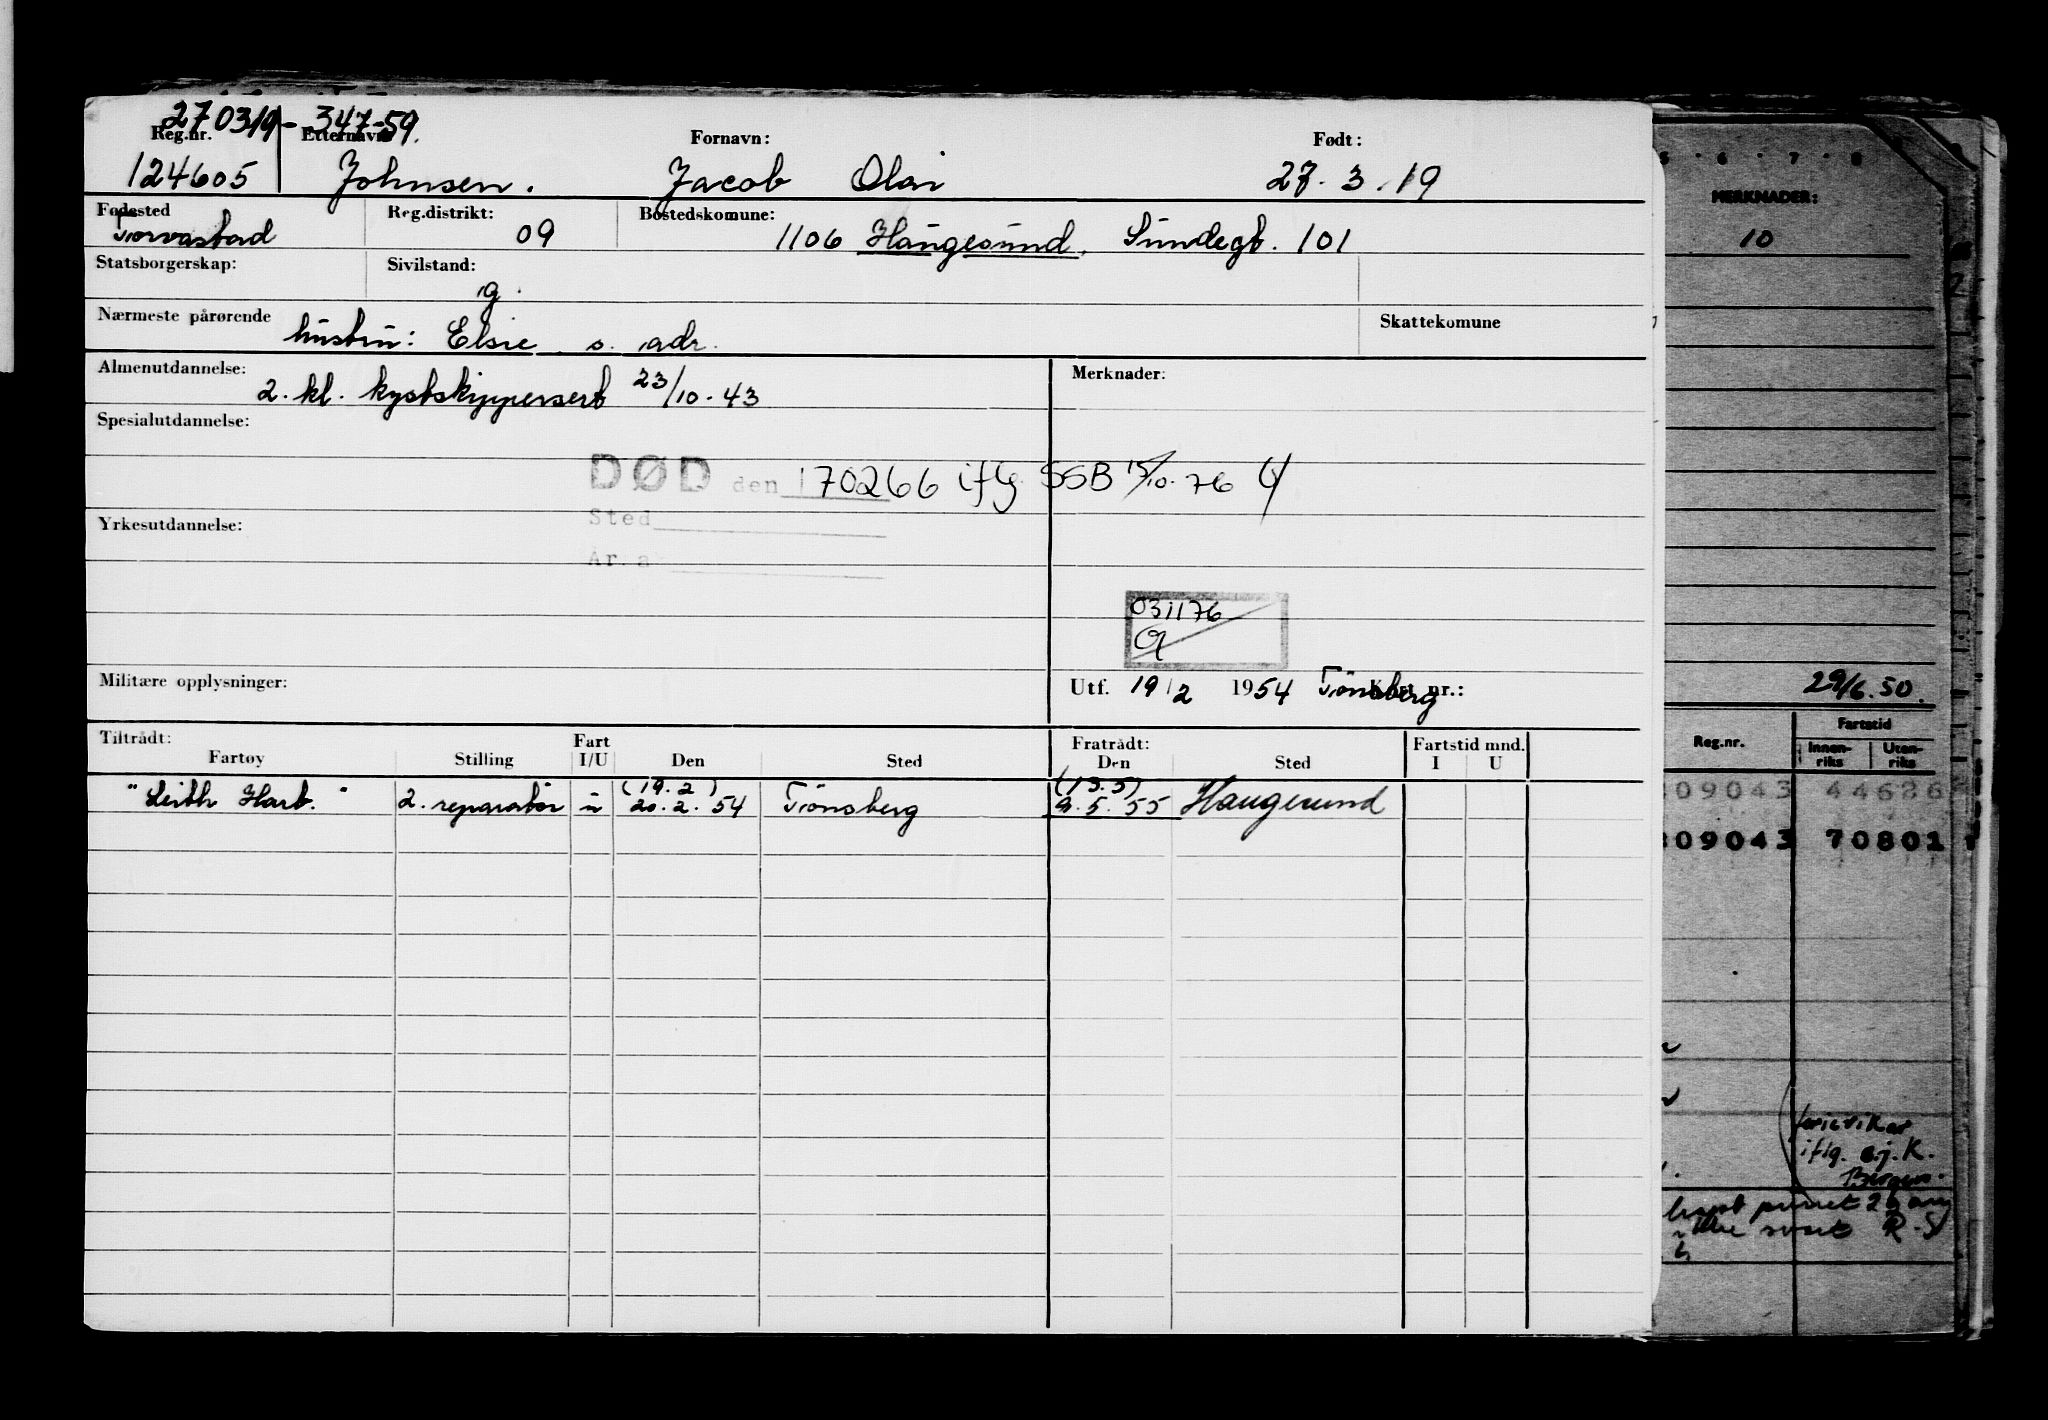 270319-347-59.
Reg.nr. Etternavn Fornavn: Født:
124605 Johnsen. Jacob Olai 27. 3. 19
Fødested Reg.distrikt: Bostedskomune:
Torvastad 09 1106 Haugesund, Sundegt. 101
Statsborgerskap: Sivilstand:
g.
Nærmeste pårørende Skattekomune
hustru: Elsie s. adr.
Almenutdannelse: Merknader:
2. kl. kystskippersert 23/10-43
Spesialutdannelse:
DØD den 170266 iflg SSB 15/10-76
Sted
Yrkesutdannelse:
År. a
031176
Militære opplysninger: Utf. 19/2 1954 Tönsberg Kort nr.:
Tiltrådt: Fart Fratrådt: Fartstid mnd.
Fartøy Stilling I/U Den Sted Den Sted I U
(19.2) (15.5)
"Leith Hart." 2. reparatör u 20.2.54 Tönsberg 9.5.55 Haugesund
5 . 6 . 7 . 8
MERKNADER:
10
29/6.50.
Reg.nr. Fartstid
Innen-riks Uten-riks
09043 44626
09043 70801
iflg. s.j.K.
Bergen.
purret 26 aug
R-S